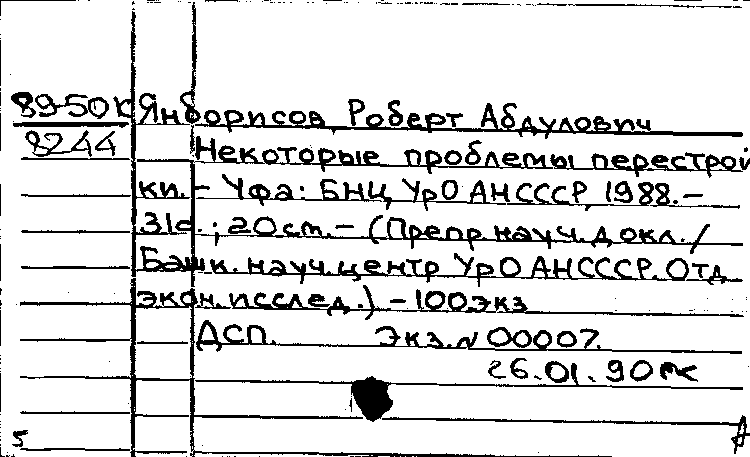 89-50к Янборисов, Роберт Абдулович
8244 Некоторые проблемы перестрой
ки. – Уфа: БНЦ УрО АН СССР, 1988. –
31с. ; 20 cm. – (Препр. науч. докл. /
Башк. науч. центр УрО АН СССР. Отд.
экон. исслед.) – 100 экз
ДСП. Экз. N 00007.
26.01.90
5